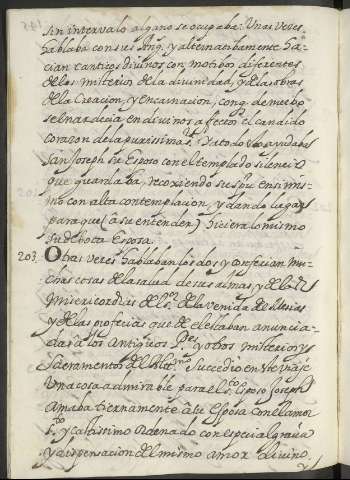 sin intervalo alguno se ocupaba. Unas veces
hablaba con sus Ang.s y alternandamente ha-
cian canticos divinos con motibos diferentes
de los misterios de la divinidad, y de las obras
de la Creacion, y encarnacion, conq. de nuebo
se enardecia en divinos afectos el candido
corazon de la purissima S.ra A todo esto ayudaba
San Joseph su Esposo con el templado silencio
que guardaba, recoxiendo su espu en si mis-
mo con alta contemplacion, y dando lugar
para que (a su entender) hiciera lo mismo
su debota Esposa.
203. Otras veces hablaban los dos, y conferian mu-
chas cosas de la salud de sus almas, y de las
misericordias del S.r de la venida del Mesias
y de las profecias que de el estaban anuncia-
das a los antiguos P.es y otros misterios y
Sacramentos del Altis.mo Succedio en este viaje
una cosa admirable para el s.to Esposo Joseph
amaba tiernamente à su Esposa con el amor
s.to y castissimo ordenado con especial gracia
y dispensacion del mismo amor divino.
y